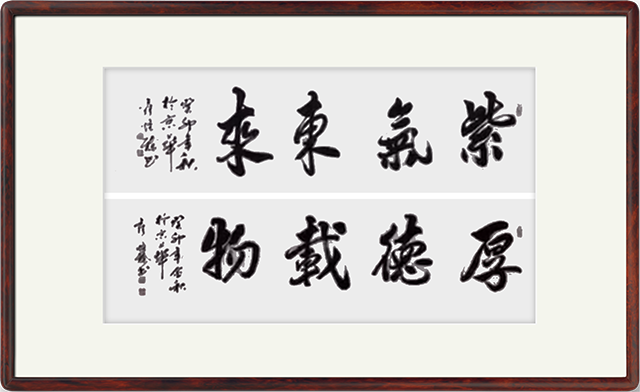 紫氣東來
癸卯年秋
於京華
厚德載物
癸卯年金秋
於京華